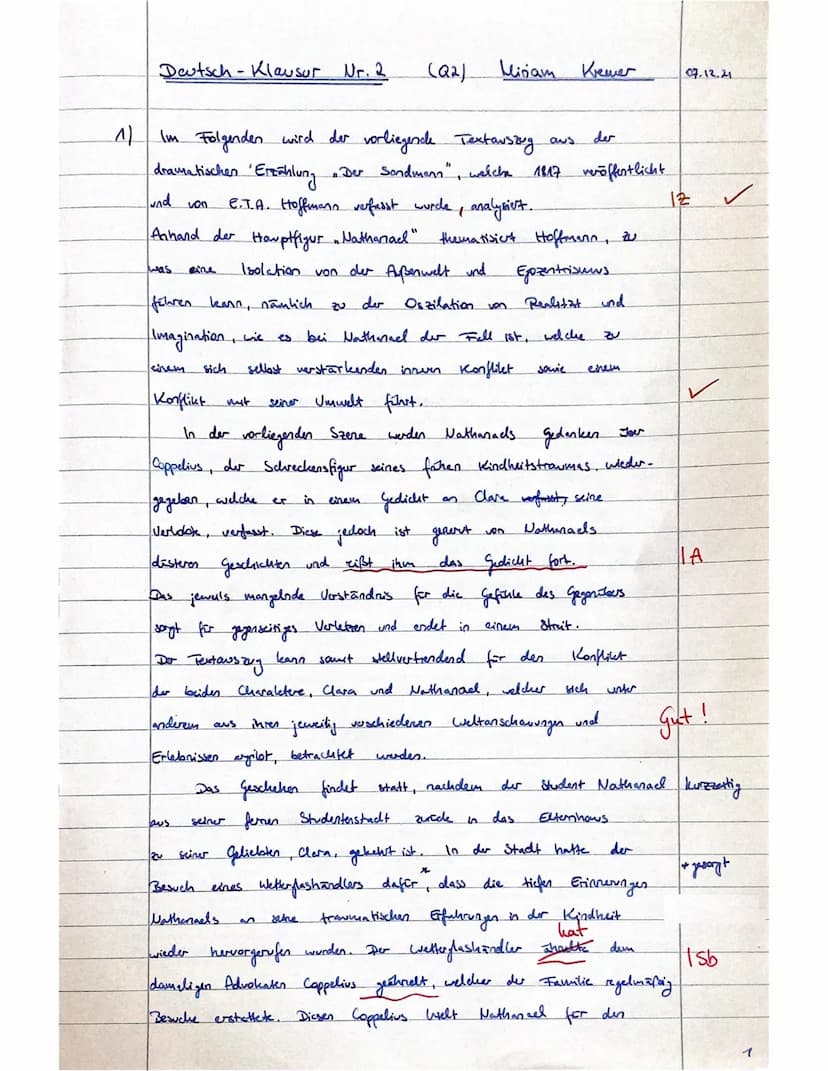 Deutsch-Klausur Nr. 2 (Q2) Miriam Kremer 07.12.21
1) Im Folgenden wird der vorliegende Textauszug aus der
dramatischen 'Erzählung „Der Sandmann“, welche 1817 veröffentlicht
und von E.T.A. Hoffmann verfasst wurde, analysiert. |Z ✓
Anhand der Hauptfigur „Nathanael“ thematisiert Hoffmann, zu
was eine Isolation von der Außenwelt und Egozentrismus
führen kann, nämlich zu der Oszilation von Realität und
Imagination, wie es bei Nathanael der Fall ist, welche zu
einem sich selbst verstärkenden inneren Konflikt sowie einem
Konflikt mit seiner Umwelt führt. ✓
In der vorliegenden Szene werden Nathanaels Gedanken über
Coppelius, der Schreckensfigur seines frühen Kindheitstraumas, wieder-
gegeben, welche er in einem Gedicht an Clara verfasst, seine
Verlobte, verfasst. Diese jedoch ist genervt von Nathanaels
düsteren Geschichten und reißt ihm das Gedicht fort. |A
Das jeweils mangelnde Verständnis für die Gefühle des Gegenübers
sorgt für gegenseitiges Verletzen und endet in einem Streit.
Der Textauszug kann somit stellvertretend für den Konflikt
der beiden Charaktere, Clara und Nathanael, welcher sich unter
anderem aus ihren jeweilig verschiedenen Weltanschauungen und Gut!
Erlebnissen ergibt, betrachtet werden.
Das Geschehen findet statt, nachdem der Student Nathanael kurzzeitig
aus seiner fernen Studentenstadt zurück in das Elternhaus
zu seiner Geliebten, Clara, gekehrt ist. In der Stadt hatte der
Besuch eines Wetterglashändlers dafür*, dass die tiefen Erinnerungen * gesorgt
Nathanaels an seine traumatischen Erfahrungen in der Kindheit
wieder hervorgerufen wurden. Der Wetterglashändler ähnelte hat dem |Sb
damaligen Advokaten Coppelius geähnelt, welcher der Familie regelmäßig
Besuche erstattete. Diesen Coppelius hielt Nathanael für den
1